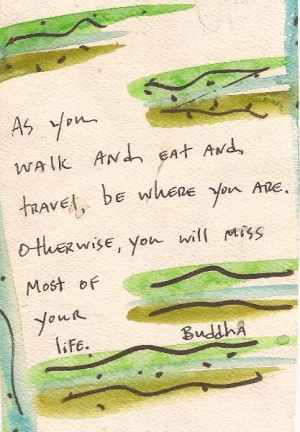 As you
walk and eat and
travel, be where you are.
Otherwise, you will miss
most of
your
life.
Buddha